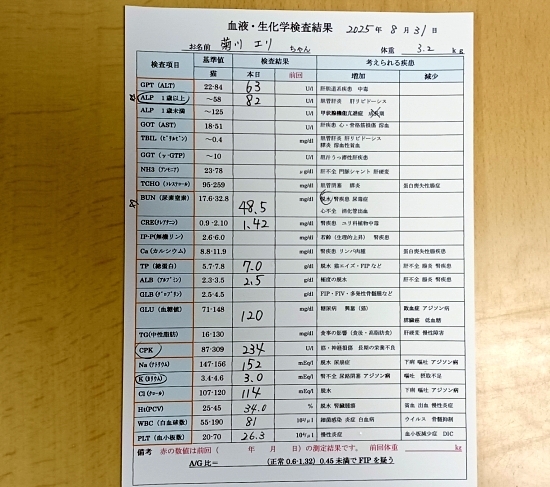 血液・生化学検査結果 2025年 8月31日
お名前 菊川 エリ ちゃん 体重 3.2 kg
検査項目 基準値 猫 検査結果 本日 前回 考えられる疾患 増加 減少
GPT (ALT) 22-84 63 U/l 肝胆道系疾患 中毒
ALP 1歳以上 ～58 82 U/l 胆管肝炎 肝リピドーシス
ALP 1歳未満 ～125 U/l 甲状腺機能亢進症
GOT (AST) 18-51 U/l 肝疾患 心・骨格筋損傷 溶血
TBIL (ビリルビン) ～0.4 mg/dl 胆管肝炎 肝リピドーシス 膵炎 溶血性貧血
GGT (γ-GTP) ～10 U/l 胆汁うっ滞性肝疾患
NH3 (アンモニア) 23-78 μg/dl 肝不全 門脈シャント 肝硬変
TCHO (コレステロール) 95-259 mg/dl 胆管閉塞 膵炎 蛋白喪失性腸症
BUN (尿素窒素) 17.6-32.8 48.5 mg/dl 脱水 腎疾患 尿毒症 心不全 消化管出血
CRE(クレアチニン) 0.9-2.10 1.42 mg/dl 腎疾患 ユリ科植物中毒
IP-P(無機リン) 2.6-6.0 mg/dl 若齢(生理的上昇) 腎疾患
Ca (カルシウム) 8.8-11.9 mg/dl 腎疾患 リンパ肉腫 蛋白喪失性腸疾患
TP (総蛋白) 5.7-7.8 7.0 g/dl 脱水 猫エイズ・FIP など 肝不全 腸炎 腎疾患
ALB (アルブミン) 2.3-3.5 2.5 g/dl 極度の脱水 肝不全 腸炎 腎疾患
GLB (グロブリン) 2.5-4.5 g/dl FIP・FIV・多発性骨髄腫など
GLU (血糖値) 71-148 120 mg/dl 糖尿病 興奮(猫) 敗血症 アジソン病 膵臓癌 低血糖
TG(中性脂肪) 16-130 mg/dl 食事の影響(食後・高脂肪食) 肝硬変 慢性障害
CPK 87-309 234 U/l 筋・神経損傷 長期の栄養不良
Na (ナトリウム) 147-156 152 mEq/l 脱水 尿崩症 下痢 嘔吐 アジソン病
K (カリウム) 3.4-4.6 3.0 mEq/l 腎不全 尿路閉塞 アジソン病 嘔吐 摂取不足
Cl (クロール) 107-120 114 mEq/l 脱水 下痢 嘔吐 アジソン病
Ht(PCV) 25-45 34.0 % 脱水 腎臓腫瘍 貧血 出血 慢性炎症
WBC (白血球数) 55-190 81 10²/μl 細菌感染 炎症 白血病 ウイルス 骨髄抑制
PLT (血小板数) 20-70 26.3 10⁴/μl 慢性炎症 血小板減少症 DIC
備考 赤の数値は前回 ( 年 月 日)の測定結果です。 前回体重 kg
A/G比＝ (正常 0.6-1.32) 0.45 未満でFIPを疑う